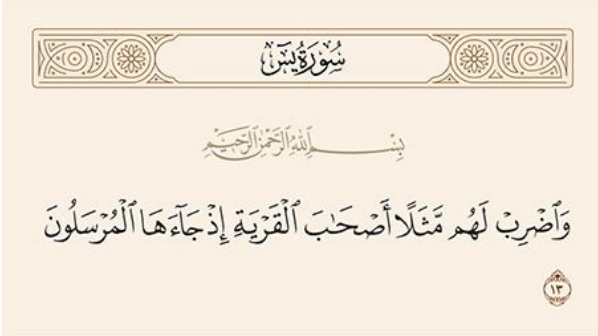 سُورَةُ يسٓ
بِسْمِ ٱللَّهِ ٱلرَّحْمَٰنِ ٱلرَّحِيمِ
وَٱضْرِبْ لَهُم مَّثَلًا أَصْحَٰبَ ٱلْقَرْيَةِ إِذْ جَآءَهَا ٱلْمُرْسَلُونَ
١٣